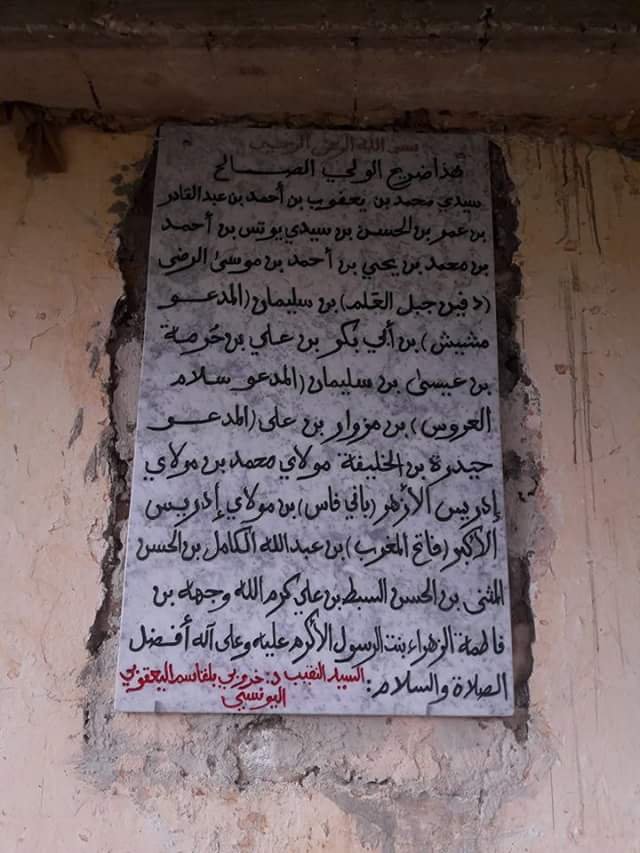 بسم الله الرحمن الرحيم
هذا ضريح الولي الصالح
سيدي محمد بن يعقوب بن أحمد بن عبد القادر
بن عمر بن الحسن بن سيدي يونس بن أحمد
بن محمد بن يحيى بن أحمد بن موسى الرضى
(دفين جبل العلم) بن سليمان (المدعو
مشيش) بن أبي بكر بن علي بن حُرمة
بن عيسى بن سليمان (المدعو سلام
العروس) بن مزوار بن علي (المدعو
حيدرة بن الخليفة مولاي محمد بن مولاي
إدريس الأزهر (باني فاس) بن مولاي إدريس
الأكبر (فاتح المغرب) بن عبد الله الكامل بن الحسن
المثنى بن الحسن السبط بن علي كرم الله وجهه بن
فاطمة الزهراء بنت الرسول الأكرم عليه وعلى آله أفضل
الصلاة والسلام: السيد النقيب د. خروبي بلقاسم اليعقوبي
اليونسي